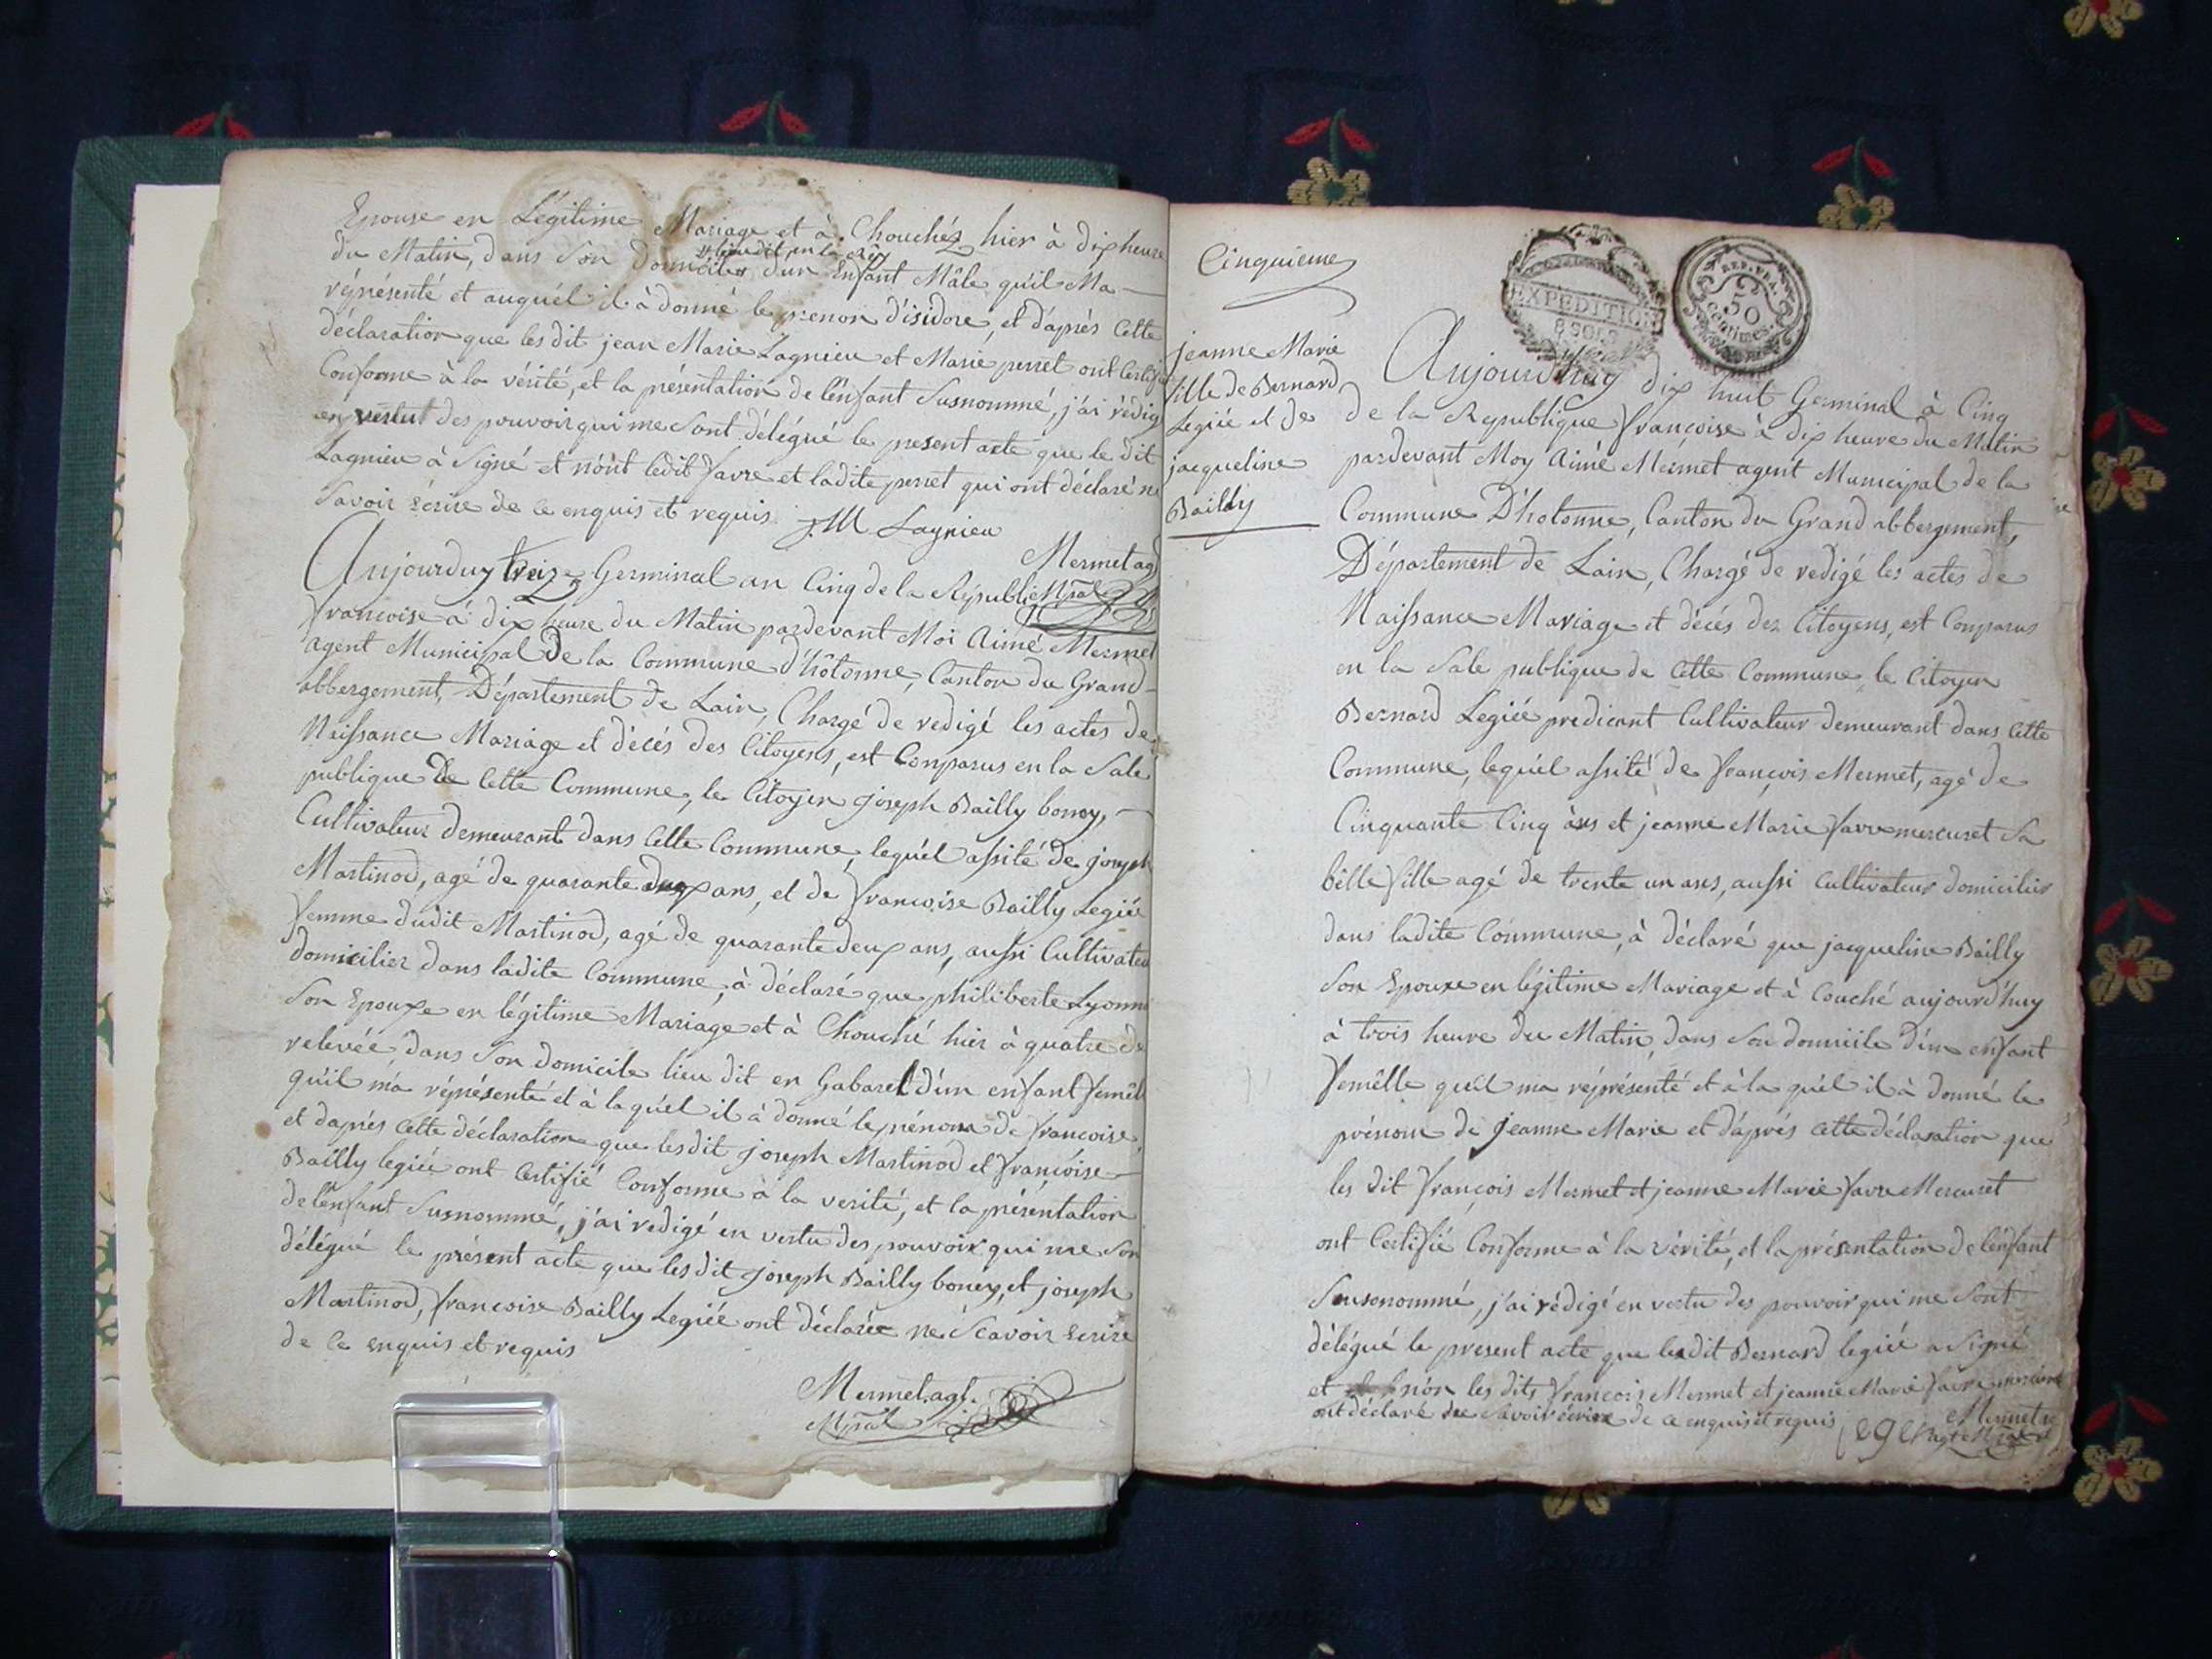 Epouse en Légitime Mariage et à Chouchéz hier à dix heure
du Matin, dans Son domicile, dun Enfant Mâle qu'il Ma
# lieu dit en la
réprésenté et auquél il à donné le prenon d'isidore, et d'aprés Cette
déclaration que les dit jean Marie Lagnieu et Marie perret ont Certifié
Conforme à la vérité, et la présentation de l'énfant Susnommé, j'ai rédig
en vertut des pouvoir qui me Sont délégué le present acte que le dit
Lagnieu à Signé et nónt ledit favre et ladite perret qui ont déclaré ne
Savoir écrire de ce enquis et requis. J. M Lagnieu
Mermet ag
Mpal
Aujourduy treize Germinal an Cinq de la Républi
françoise à dix heure du Matin pardevant Moi Aimé Mermet
agent Municipal de la Commune d'hôtonne, Canton du Grand
abbergement, Département de Lain, Chargé de redigé les actes de
Naissance Mariage et décés des Citoyens, est Comparus en la Sale
publique de Cette Commune, le Citoyen joseph Bailly boney,
Cultivateur demeurant dans Cette Commune, lequél assité de joseph
Martinod, agé de quarante deux ans, et de françoise Bailly Legiée
femme dudit Martinod, agé de quarante deux ans, aussi Cultivateu
domicilier dans ladite Commune, à déclaré que philiberte Lyonne
Son Epouxe en légitime Mariage et à Chouché hier à quatre de
relevéé, dans Son domicile lieu dit en Gabaret d'ún enfant femêll
qu'il m'a réprésenté et à laquél il à donné le prénom de françoise
et daprés cette déclaration que les dit joseph Martinod et françoise
Bailly legiée ont Certifié Conforme à la verité, et la présentation
de l'énfant Susnommé, j'ai redigé en vertu des pouvoir qui me Son
délégué le présent acte que les dit joseph Bailly boney, et joseph
Martinod, françoise Bailly Legiéé ont déclarée ne Scavoir Ecrire
de Ce enquis et requis
Mermet. agt.
Mpal
Cinquieme
jeanne Marie
fille de Bernard
Legiée et de
jacqueline
Bailly
EXPEDITION
8 SOLS
REP. FRA.
50
Centimes.
Aujourd'huy dix huit Germinal à Cinq
de la Republique françoise à dix heure du Matin
pardevant Moy Aimé Mermet agent Municipal de la
Commune D'hotonne, Canton du Grand abbergement,
Département de Lain, Chargé de redigé les actes de
Naissance Mariage et décés des Citoyens, est Comparus
en la Sale publique de Cette Commune le Citoyen
Bernard Legiée predicant Cultivateur demeurant dans Cette
Commune, lequél assité de françois Mermet, agé de
Cinquante Cinq ans et jeanne Marie favre mercuret Sa
bélle fille agé de trente un ans, aussi Cultivateur domicilier
dans ladite Commune, à déclaré que jacqueline Bailly
Son Epouxe en légitime Mariage et à Couché aujourd'huy
à trois heure du Matin, dans Son domicile d'ún enfant
femêlle qu'il ma réprésenté et à la quél il à donné le
prénom de jeanne Marie et d'áprés cette déclaration que
les dit françois Mermet et jeanne Marie favre Mercuret
ont Certifié Conforme à la vérité, et la présentation de l'énfant
Sensnommé, j'ai rédigé en vertu des pouvoir qui me Sont
délégué le present acte que ledit Bernard legiéé a Signé
et nón les dits françois Mermet et jeanne Marie favre
ont déclaré ne Savoir écrire de ce enquis et requis
Mermet